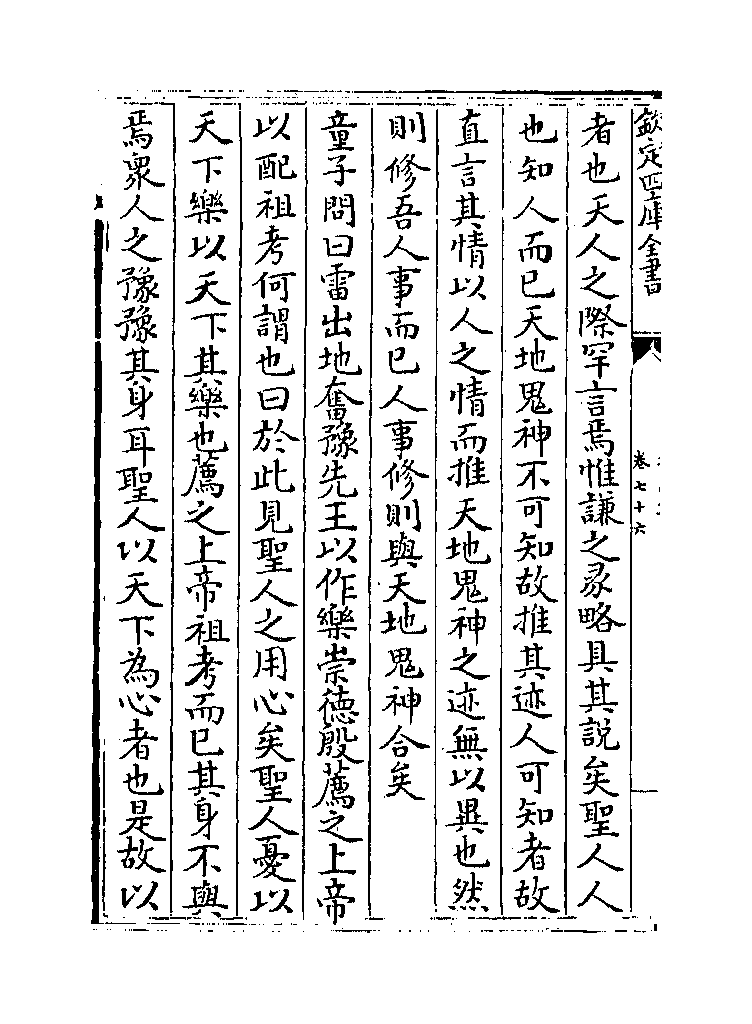 欽定四庫全書
卷七十六
者也天人之際罕言焉惟謙之彖略具其說矣聖人人
也知人而已天地鬼神不可知故推其迹人可知者故
直言其情以人之情而推天地鬼神之迹無以異也然
則修吾人事而已人事修則與天地鬼神合矣
童子問曰雷出地奮豫先王以作樂崇德殷薦之上帝
以配祖考何謂也曰於此見聖人之用心矣聖人憂以
天下樂以天下其樂也薦之上帝祖考而已其身不與
焉衆人之豫豫其身耳聖人以天下為心者也是故以